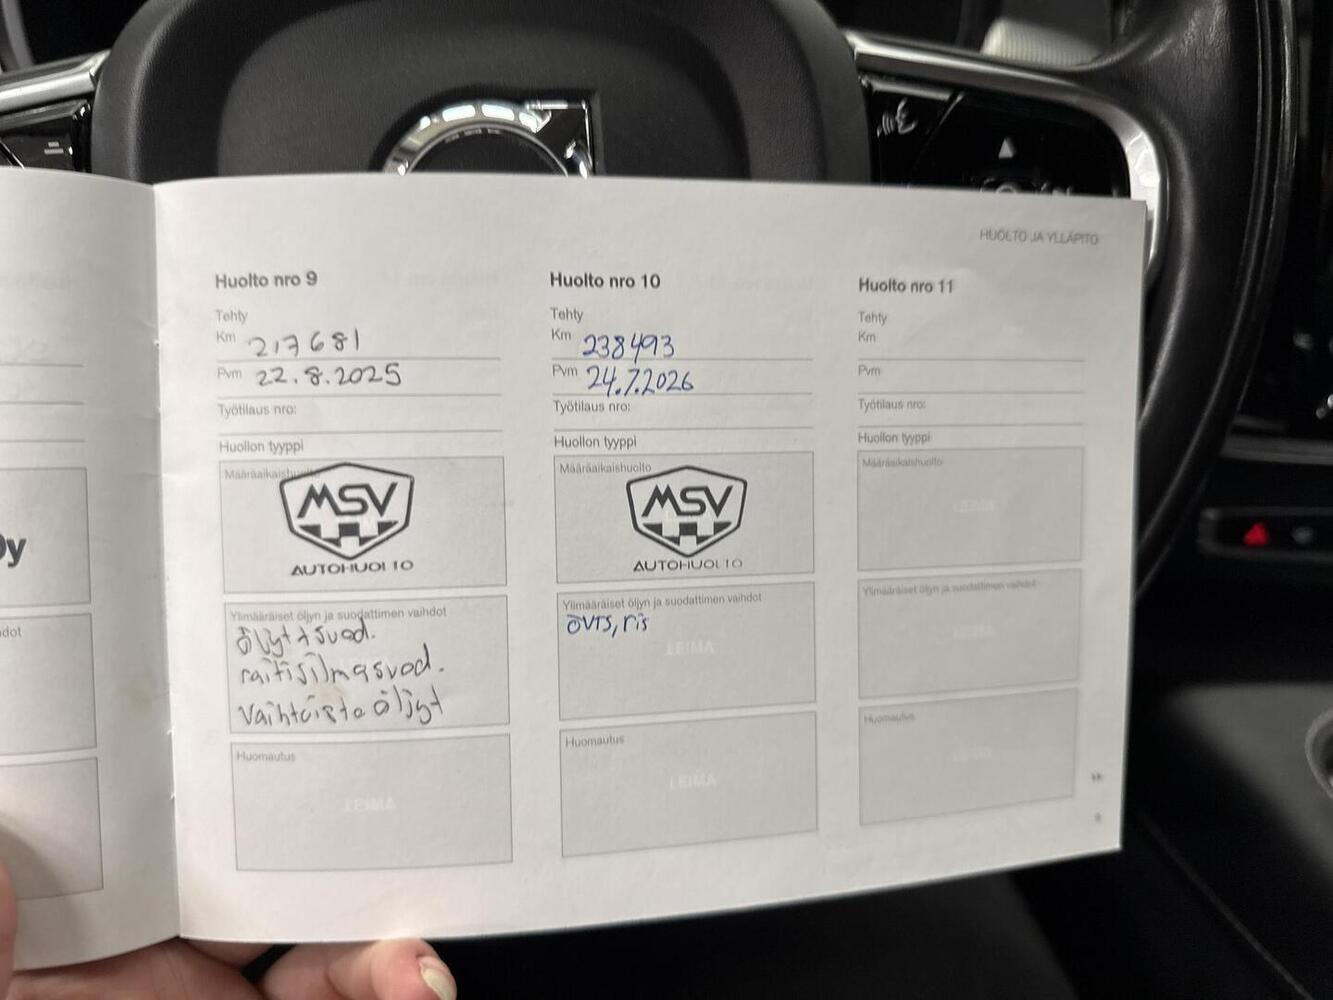 HUOLTO JA YLLÄPITO
Huolto nro 9
Tehty
Km 217681
Pvm 22.8.2025
Työtilaus nro:
Huollon tyyppi
Määräaikaishuolto
MSV
AUTOHUOLTO
Ylimääräiset öljyn ja suodattimen vaihdot
öljyt + suod.
raitisilmasuod.
vaihteisto öljyt
Huomautus
LEIMA
Huolto nro 10
Tehty
Km 238493
Pvm 24.7.2026
Työtilaus nro:
Huollon tyyppi
Määräaikaishuolto
MSV
AUTOHUOLTO
Ylimääräiset öljyn ja suodattimen vaihdot
övrs, ris
LEIMA
Huomautus
LEIMA
Huolto nro 11
Tehty
Km
Pvm
Työtilaus nro:
Huollon tyyppi
Määräaikaishuolto
LEIMA
Ylimääräiset öljyn ja suodattimen vaihdot
LEIMA
Huomautus
LEIMA
9